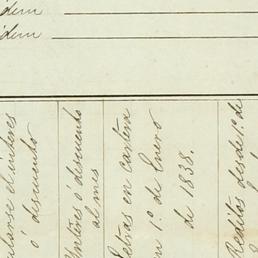 idem
idem
ularse el interes
ó descuento
Interes ó descuento
al mes
Letras en cartera
en 1º. de Enero
de 1838.
Reditos desde 1º. de